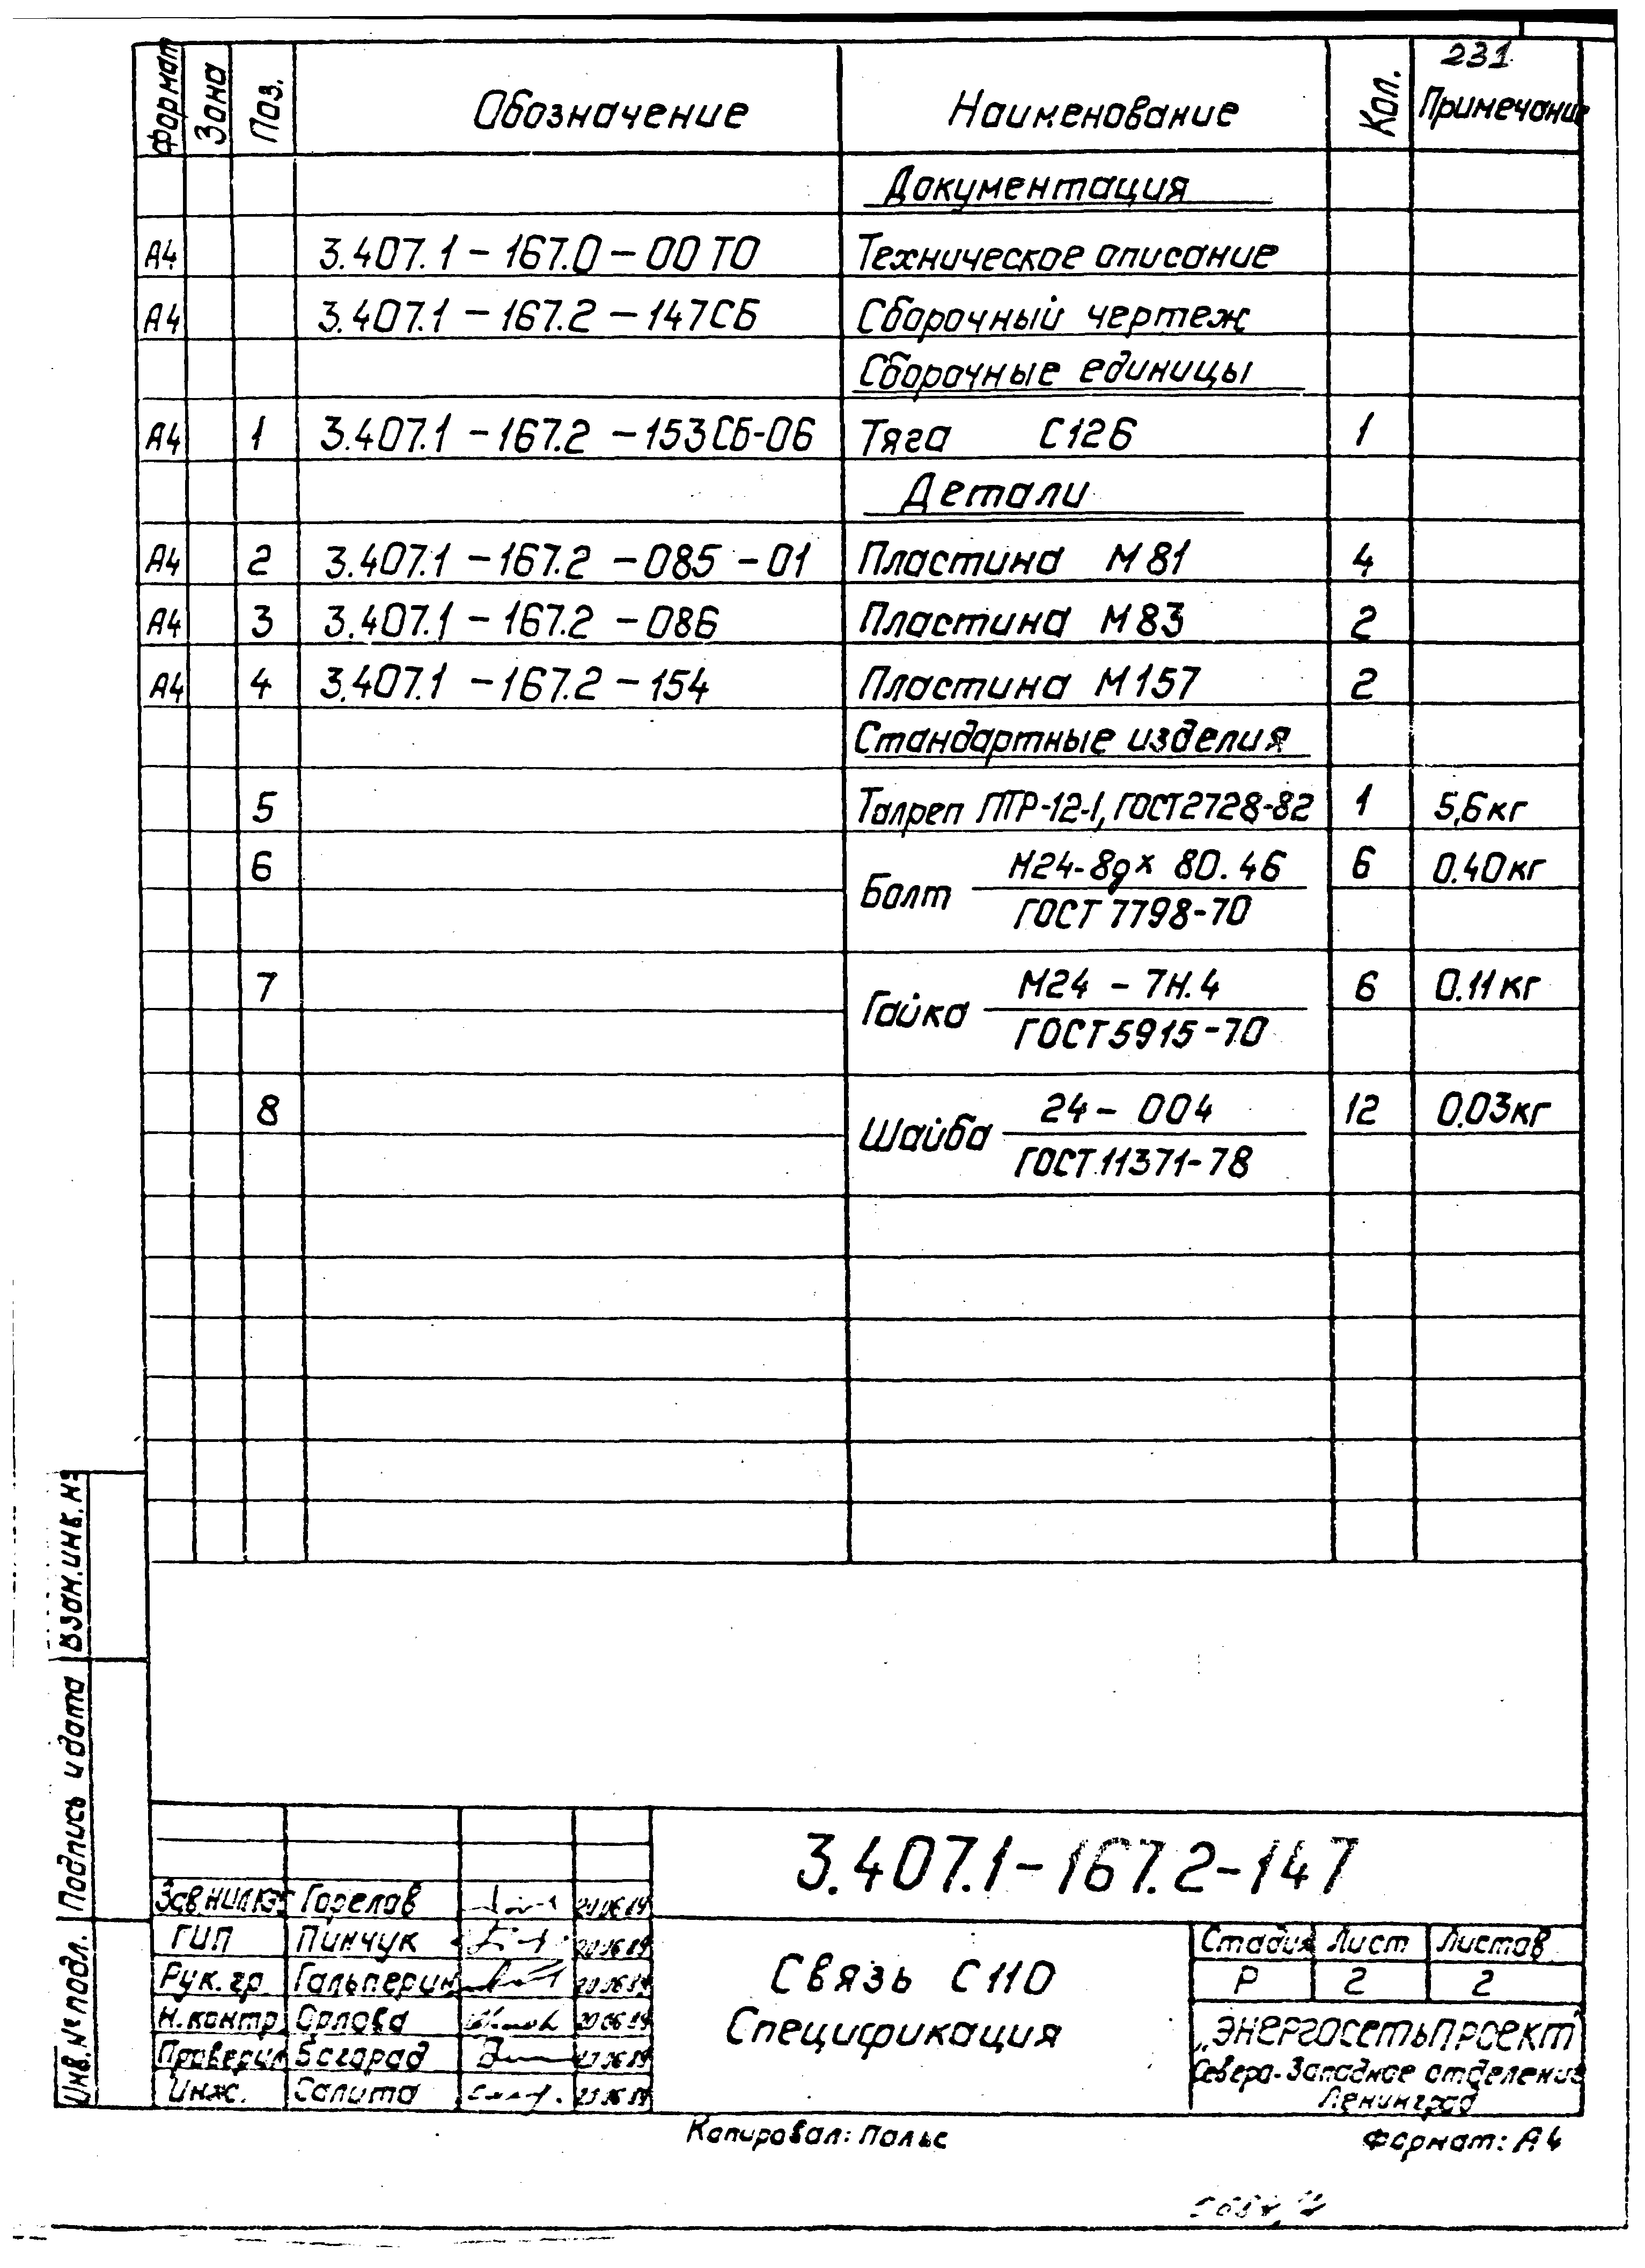 231
Формат Зона Поз. Обозначение Наименование Кол. Примечание
Документация
А4 3.407.1-167.0-00 ТО Техническое описание
А4 3.407.1-167.2-147СБ Сборочный чертеж
Сборочные единицы
А4 1 3.407.1-167.2-153СБ-06 Тяга С126 1
Детали
А4 2 3.407.1-167.2-085-01 Пластина М81 4
А4 3 3.407.1-167.2-086 Пластина М83 2
А4 4 3.407.1-167.2-154 Пластина М157 2
Стандартные изделия
5 Талреп ПТР-12-1, ГОСТ2728-82 1 5,6кг
6 Болт М24-8gх 80.46 6 0.40кг
ГОСТ 7798-70
7 Гайка М24-7Н.4 6 0.11кг
ГОСТ 5915-70
8 Шайба 24-004 12 0.03кг
ГОСТ.11371-78
Взам.инв.№
Подпись и дата
Инв.№подл.
3.407.1-167.2-147
Горелов
ГИП Пинчук
Рук.гр. Гальперин
Н.контр. Орлова
Проверил
Инж. Солита
Связь С110
Спецификация
Стадия Лист Листов
Р 2 2
„Энергосетьпроект"
Северо-Западное отделение
Ленинград
Копировал: Польс
Формат: А4